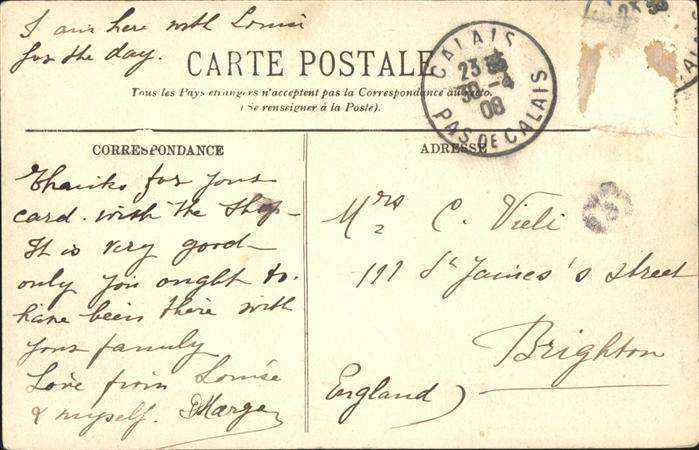 I am here with Louise
for the day.
CARTE POSTALE
Tous les Pays étrangers n'acceptent pas la Correspondance au recto.
(Se renseigner à la Poste).
CALAIS
23
30 -4
08
PAS DE CALAIS
CORRESPONDANCE
ADRESSE
Thanks for your
card. with the Shop-
It is very good-
only you ought to.
have been there with
your family
Love from Louise
& myself.
Mrs C. Vieli
111 St James's street
Brighton
England)